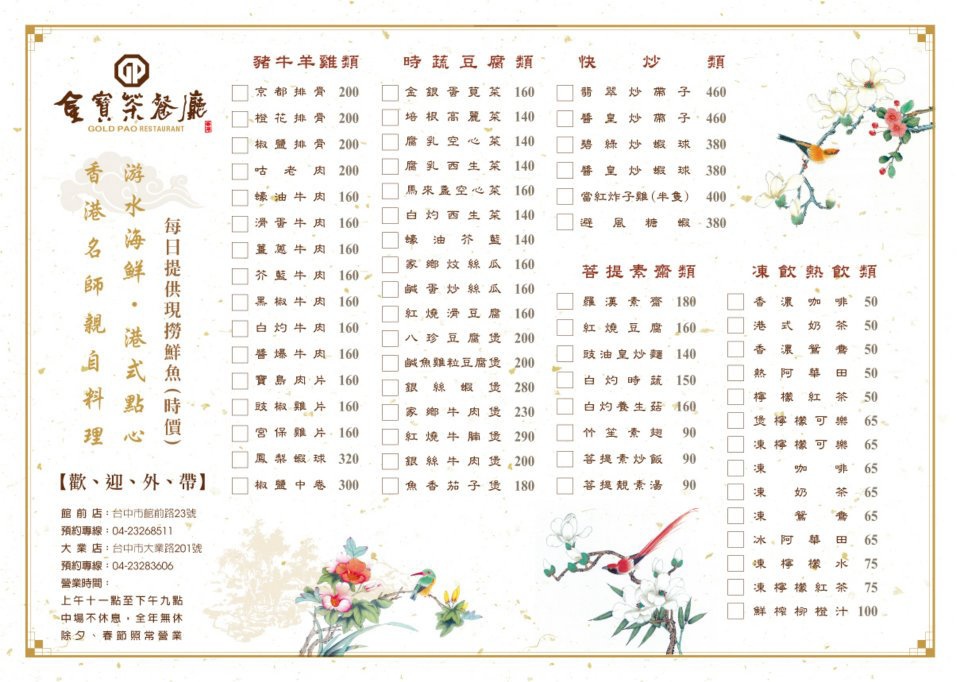 金寶茶餐廳
GOLD PAO RESTAURANT
游水海鮮・港式點心
香港名師親自料理
每日提供現撈鮮魚(時價)
【歡、迎、外、帶】
館前店：台中市館前路23號
預約專線：04-23268511
大業店：台中市大業路201號
預約專線：04-23283606
營業時間：
上午十一點至下午九點
中場不休息，全年無休
除夕、春節照常營業
豬牛羊雞類
京都排骨 200
橙花排骨 200
椒鹽排骨 200
咕老肉 200
蠔油牛肉 160
滑蛋牛肉 160
薑蔥牛肉 160
芥藍牛肉 160
黑椒牛肉 160
白灼牛肉 160
醬爆牛肉 160
寶島肉片 160
豉椒雞片 160
宮保雞片 160
鳳梨蝦球 320
椒鹽中卷 300
時蔬豆腐類
金銀蛋莧菜 160
培根高麗菜 140
腐乳空心菜 140
腐乳西生菜 140
馬來盞空心菜 160
白灼西生菜 140
蠔油芥藍 140
家鄉炆絲瓜 160
鹹蛋炒絲瓜 160
紅燒滑豆腐 160
八珍豆腐煲 200
鹹魚雞粒豆腐煲 200
銀絲蝦煲 280
家鄉牛肉煲 230
紅燒牛腩煲 290
銀絲牛肉煲 200
魚香茄子煲 180
快炒類
翡翠炒帶子 460
醬皇炒帶子 460
碧綠炒蝦球 380
醬皇炒蝦球 380
當紅炸子雞(半隻) 400
避風糖蝦 380
菩提素齋類
羅漢素齋 180
紅燒豆腐 160
豉油皇炒麵 140
白灼時蔬 150
白灼養生菇 160
竹笙素翅 90
菩提素炒飯 90
菩提靚素湯 90
凍飲熱飲類
香濃咖啡 50
港式奶茶 50
香濃鴛鴦 50
熱阿華田 50
檸檬紅茶 50
煲檸檬可樂 65
凍檸檬可樂 65
凍咖啡 65
凍奶茶 65
凍鴛鴦 65
冰阿華田 65
凍檸檬水 75
凍檸檬紅茶 75
鮮榨柳橙汁 100